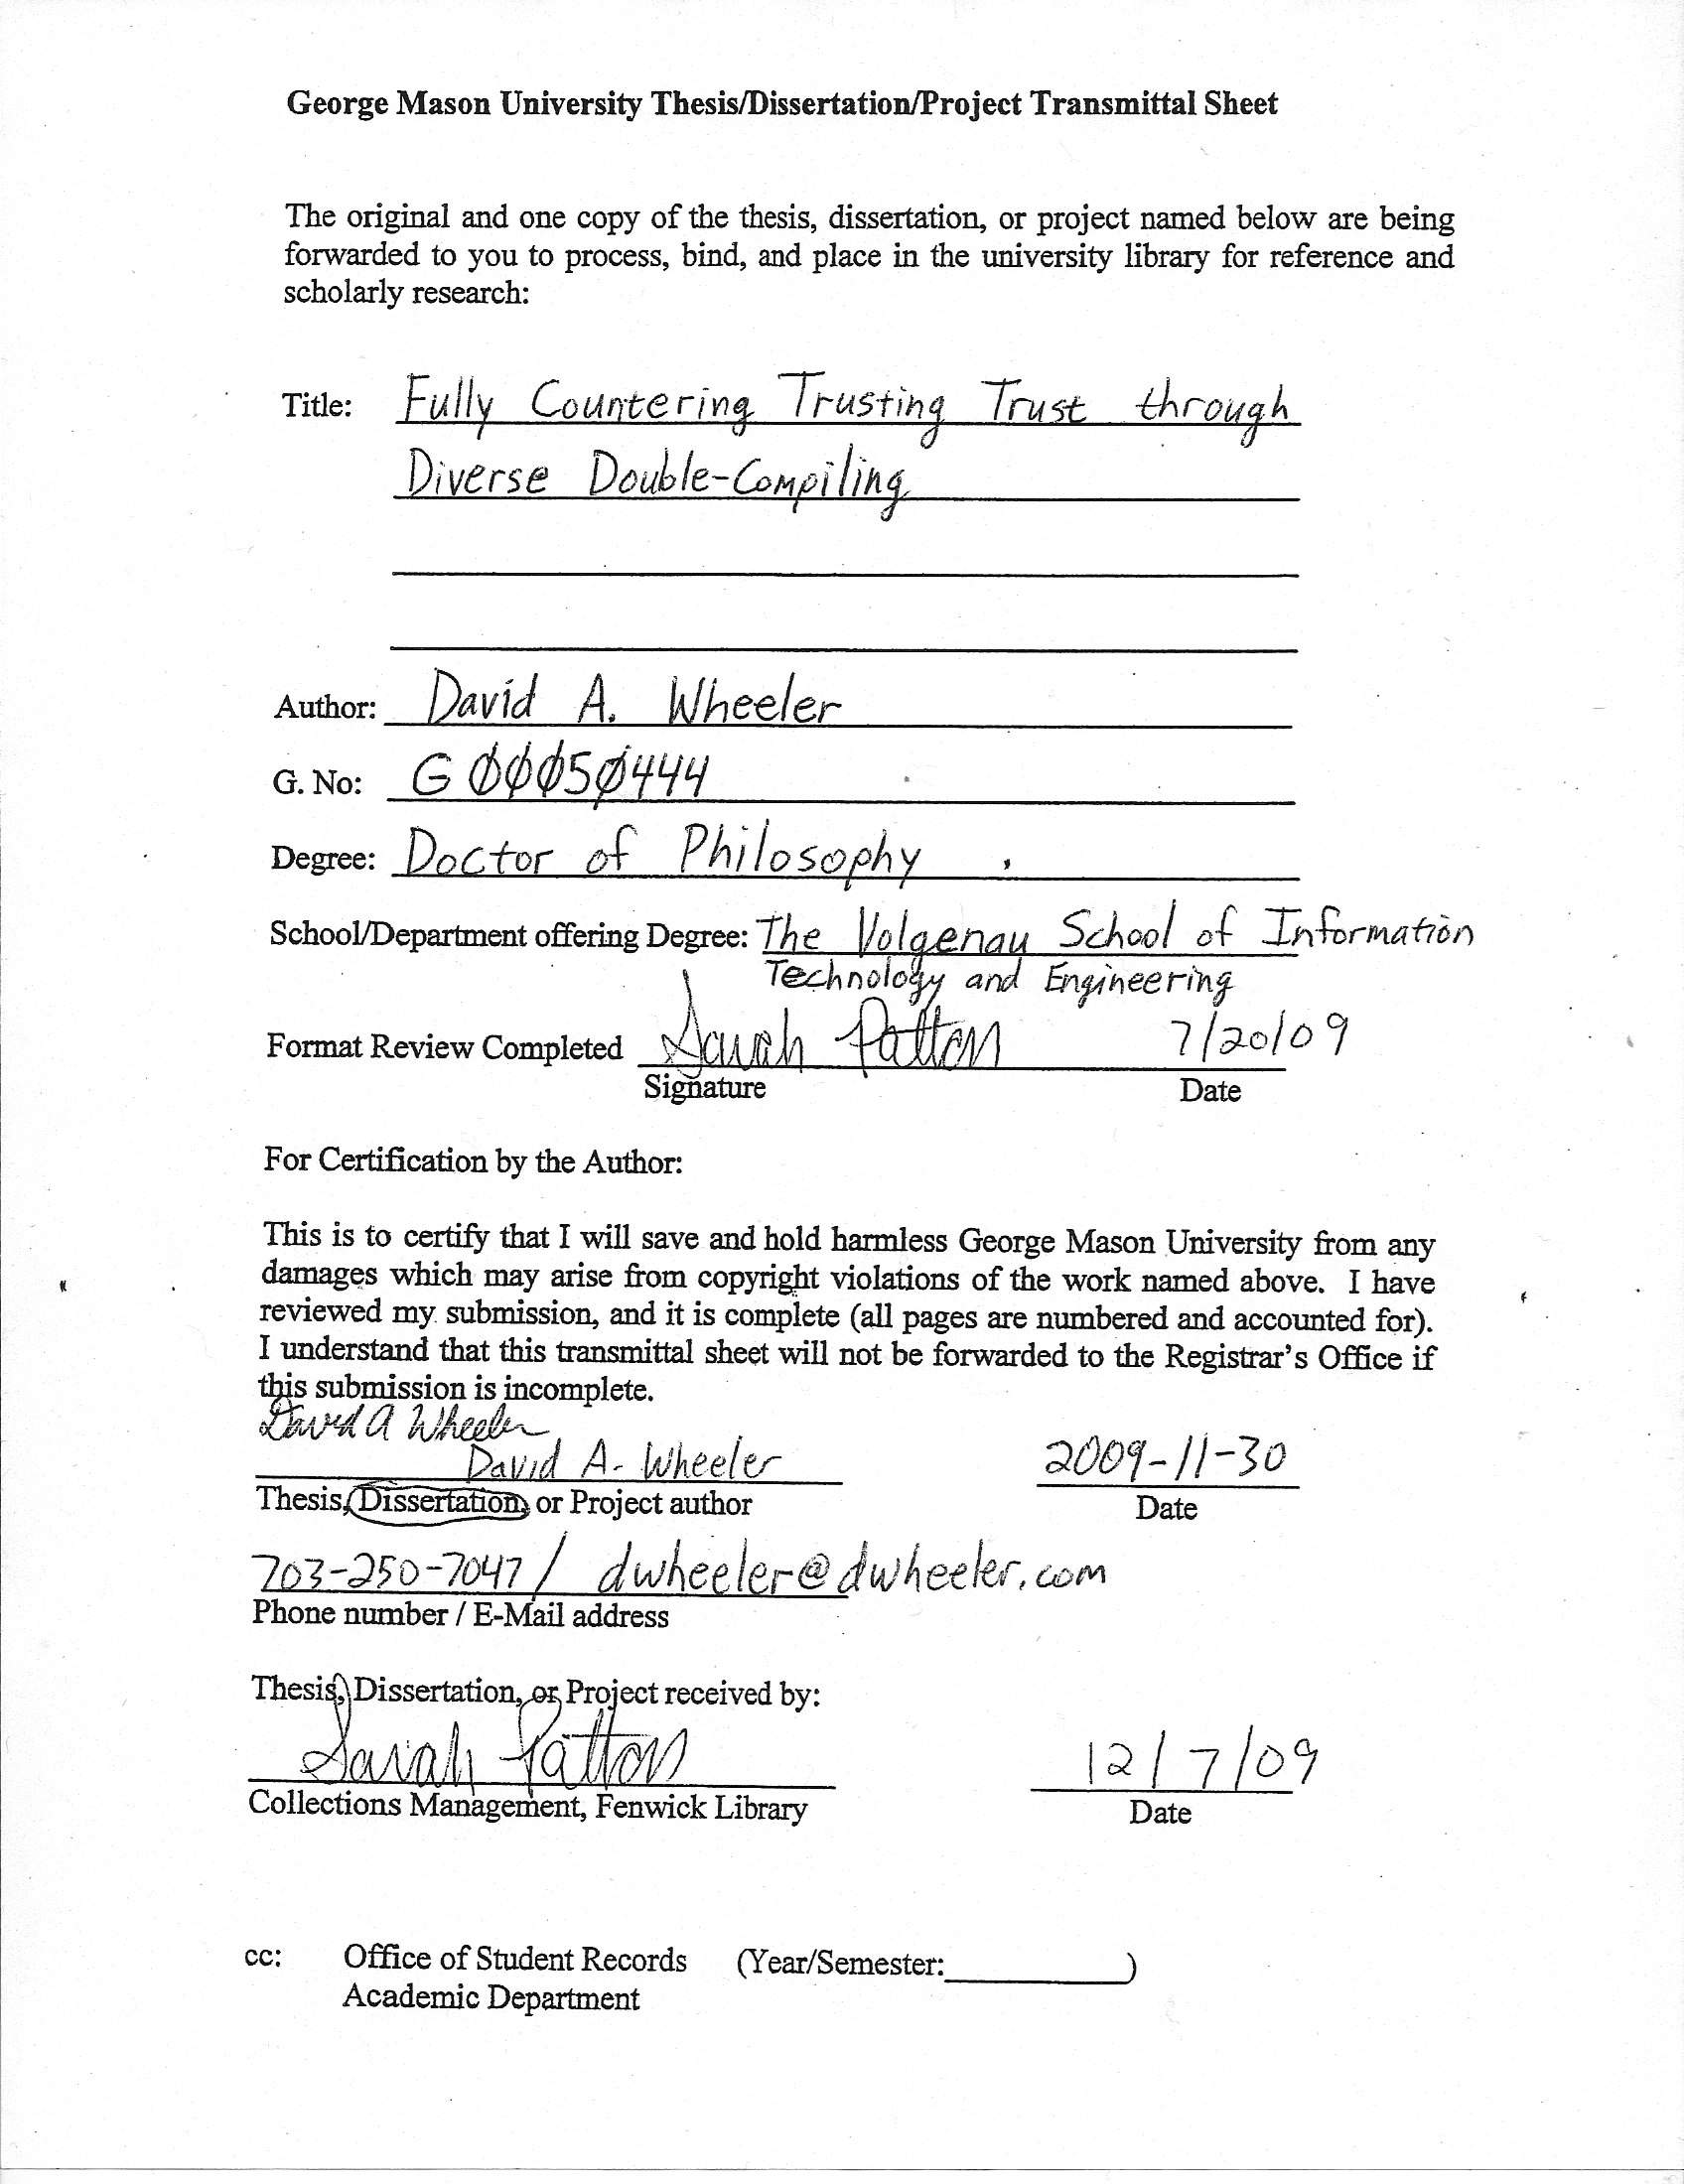 George Mason University Thesis/Dissertation/Project Transmittal Sheet
The original and one copy of the thesis, dissertation, or project named below are being
forwarded to you to process, bind, and place in the university library for reference and
scholarly research:
Title: Fully Countering Trusting Trust through
Diverse Double-Compiling
Author: David A. Wheeler
G. No: G 00050444
Degree: Doctor of Philosophy
School/Department offering Degree: The Volgenau School of Information
Technology and Engineering
Format Review Completed Sarah Patton 7/20/09
Signature Date
For Certification by the Author:
This is to certify that I will save and hold harmless George Mason University from any
damages which may arise from copyright violations of the work named above. I have
reviewed my submission, and it is complete (all pages are numbered and accounted for).
I understand that this transmittal sheet will not be forwarded to the Registrar's Office if
this submission is incomplete.
David A Wheeler
David A. Wheeler 2009-11-30
Thesis, Dissertation, or Project author Date
703-250-7047 / dwheeler@dwheeler.com
Phone number / E-Mail address
Thesis, Dissertation, or Project received by:
Sarah Patton 12/7/09
Collections Management, Fenwick Library Date
cc: Office of Student Records (Year/Semester: )
Academic Department